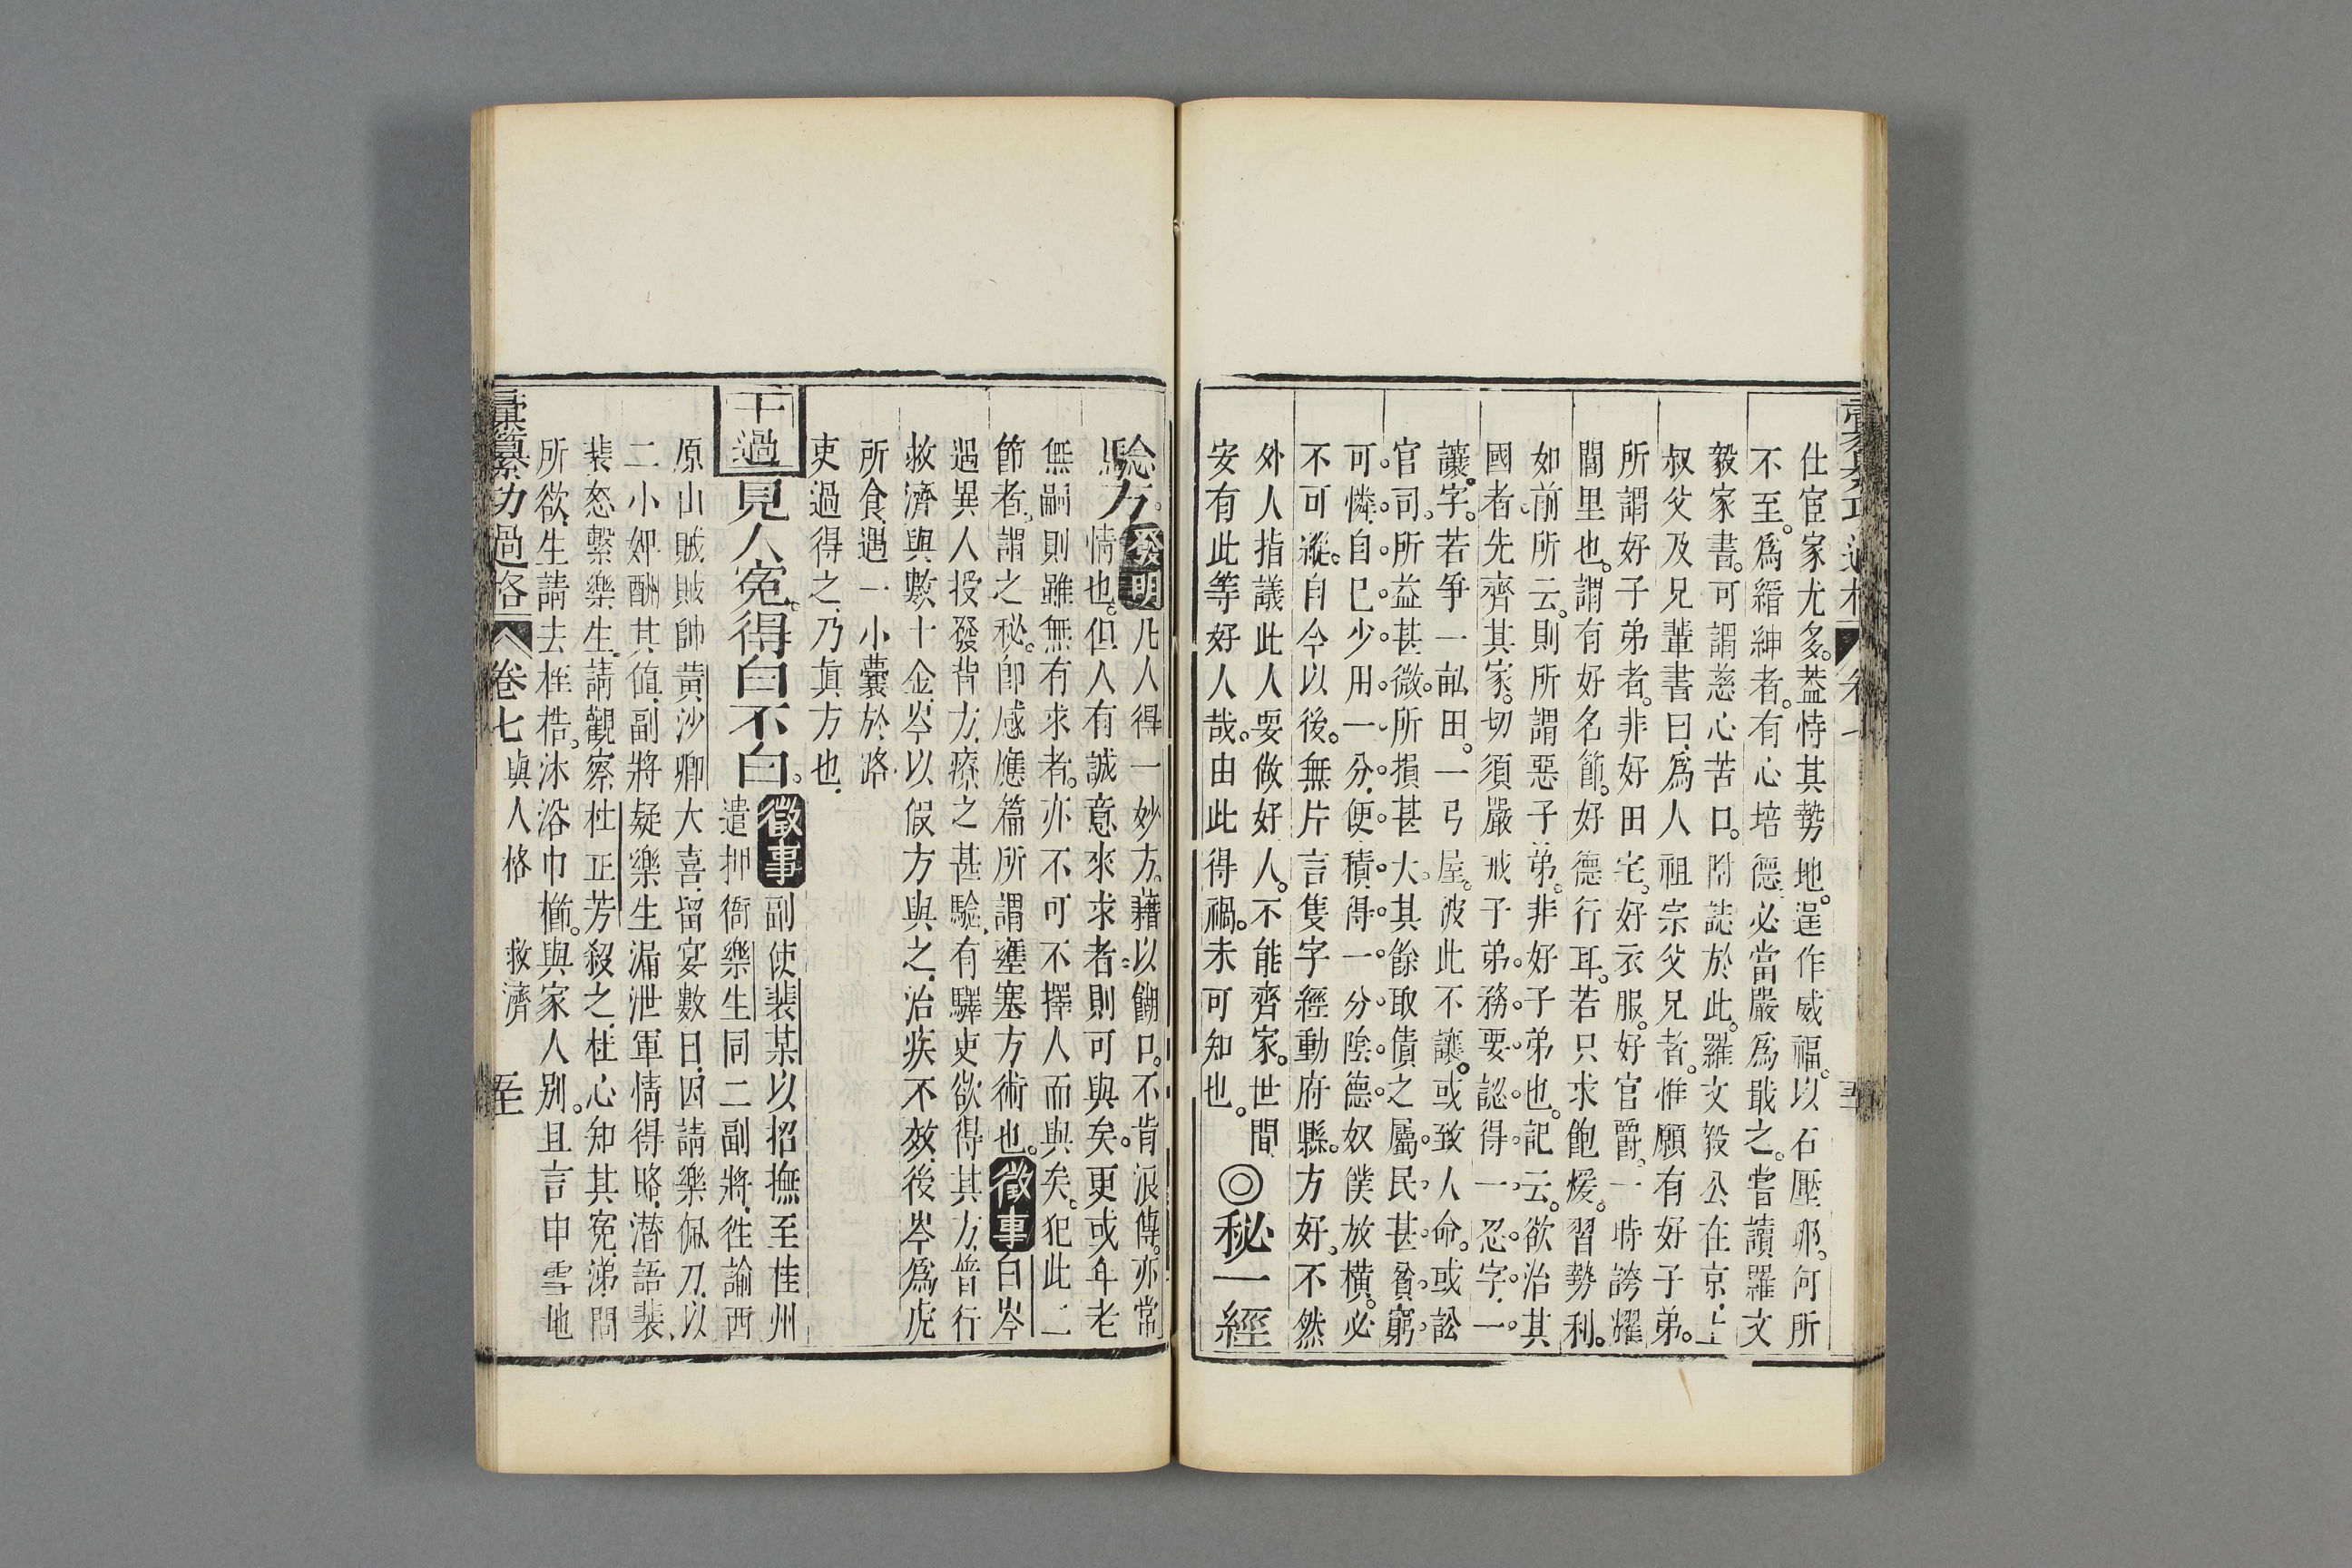 仕宦家尤多。蓋恃其勢地。逞作威福。以石壓卵。何所
不至。爲縉紳者。有心培德。必當嚴爲戢之。嘗讀羅文
毅家書。可謂慈心苦口。附誌於此。羅文毅公在京。上
叔父及兄輩書曰。爲人祖宗父兄者。惟願有好子弟。
所謂好子弟者。非好田宅。好衣服。好官爵。一時誇耀
閭里也。謂有好名節。好德行耳。若只求飽煖。習勢利。
如前所云。則所謂惡子弟。非好子弟也。記云。欲治其
國者。先齊其家。切須嚴戒子弟。務要認得一忍字。一
讓字。若爭一畝田。一弓屋。彼此不讓。或致人命。或訟
官司。所益甚微。所損甚大。其餘取債之屬。民甚貧窮。
可憐。自己少用一分。便積得一分陰德。奴僕放橫。必
不可縱。自今以後。無片言隻字經動府縣。方好。不然
外人指議此人要做好人。不能齊家。世間
安有此等好人哉。由此得禍。未可知也。
◎秘一經
驗方。
發明
凡人得一妙方。藉以餬口。不肯浪傳。亦常
情也。但人有誠意來求者。則可與矣。更或年老
無嗣。則雖無有求者。亦不可不擇人而與矣。犯此二
節者。謂之秘。卽感應篇所謂壅塞方術也。徵事白岑
遇異人授發背方。療之甚驗。有驛吏欲得其方。普行
救濟。與數十金。岑以假方與之。治疾不效。後岑爲虎
所食。遇一小囊於路
吏過得之。乃眞方也。
十過
見人冤。得白不白。
徵事
副使裴某以招撫至桂州
遣押衙樂生同二副將。往諭西
原山賊。賊帥黃沙卿大喜。留宴數日。因請樂佩刀。以
二小婢酬其値。副將疑樂生漏泄軍情得賂。潛語裴。
裴怒繫樂生。請觀察杜正芳殺之。杜心知其冤。涕問
所欲。生請去桎梏。沐浴巾櫛。與家人別。且言申雪地
彙纂功過格
卷七 與人格 救濟